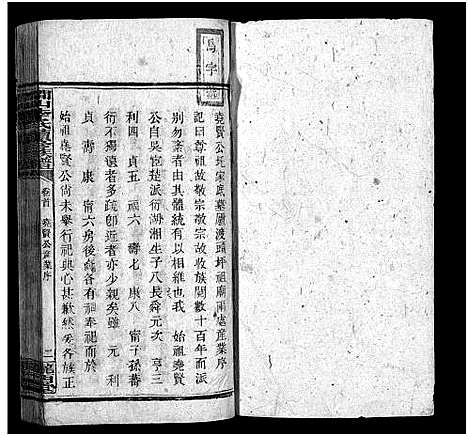 堯賢公坪宋底墓廬渡頭坪祖廟兩處產業序
記曰尊祖故敬宗敬宗故收族閱數十百年而派
別勿紊者由其體統有以相維也我　始祖堯賢
公自吳宦楚派衍湖湘生子八長舜元次　亨三
利四　貞五　福六　壽七　康八　甯子孫蕃
衍不獨遠者多疏即近者亦少親矣雖　元　利
貞　壽　康　甯六房後裔各有祠奉祀而於
始祖堯賢公尚未舉行祀典心甚歉然爰各族正
卷首　堯賢公產業序
二